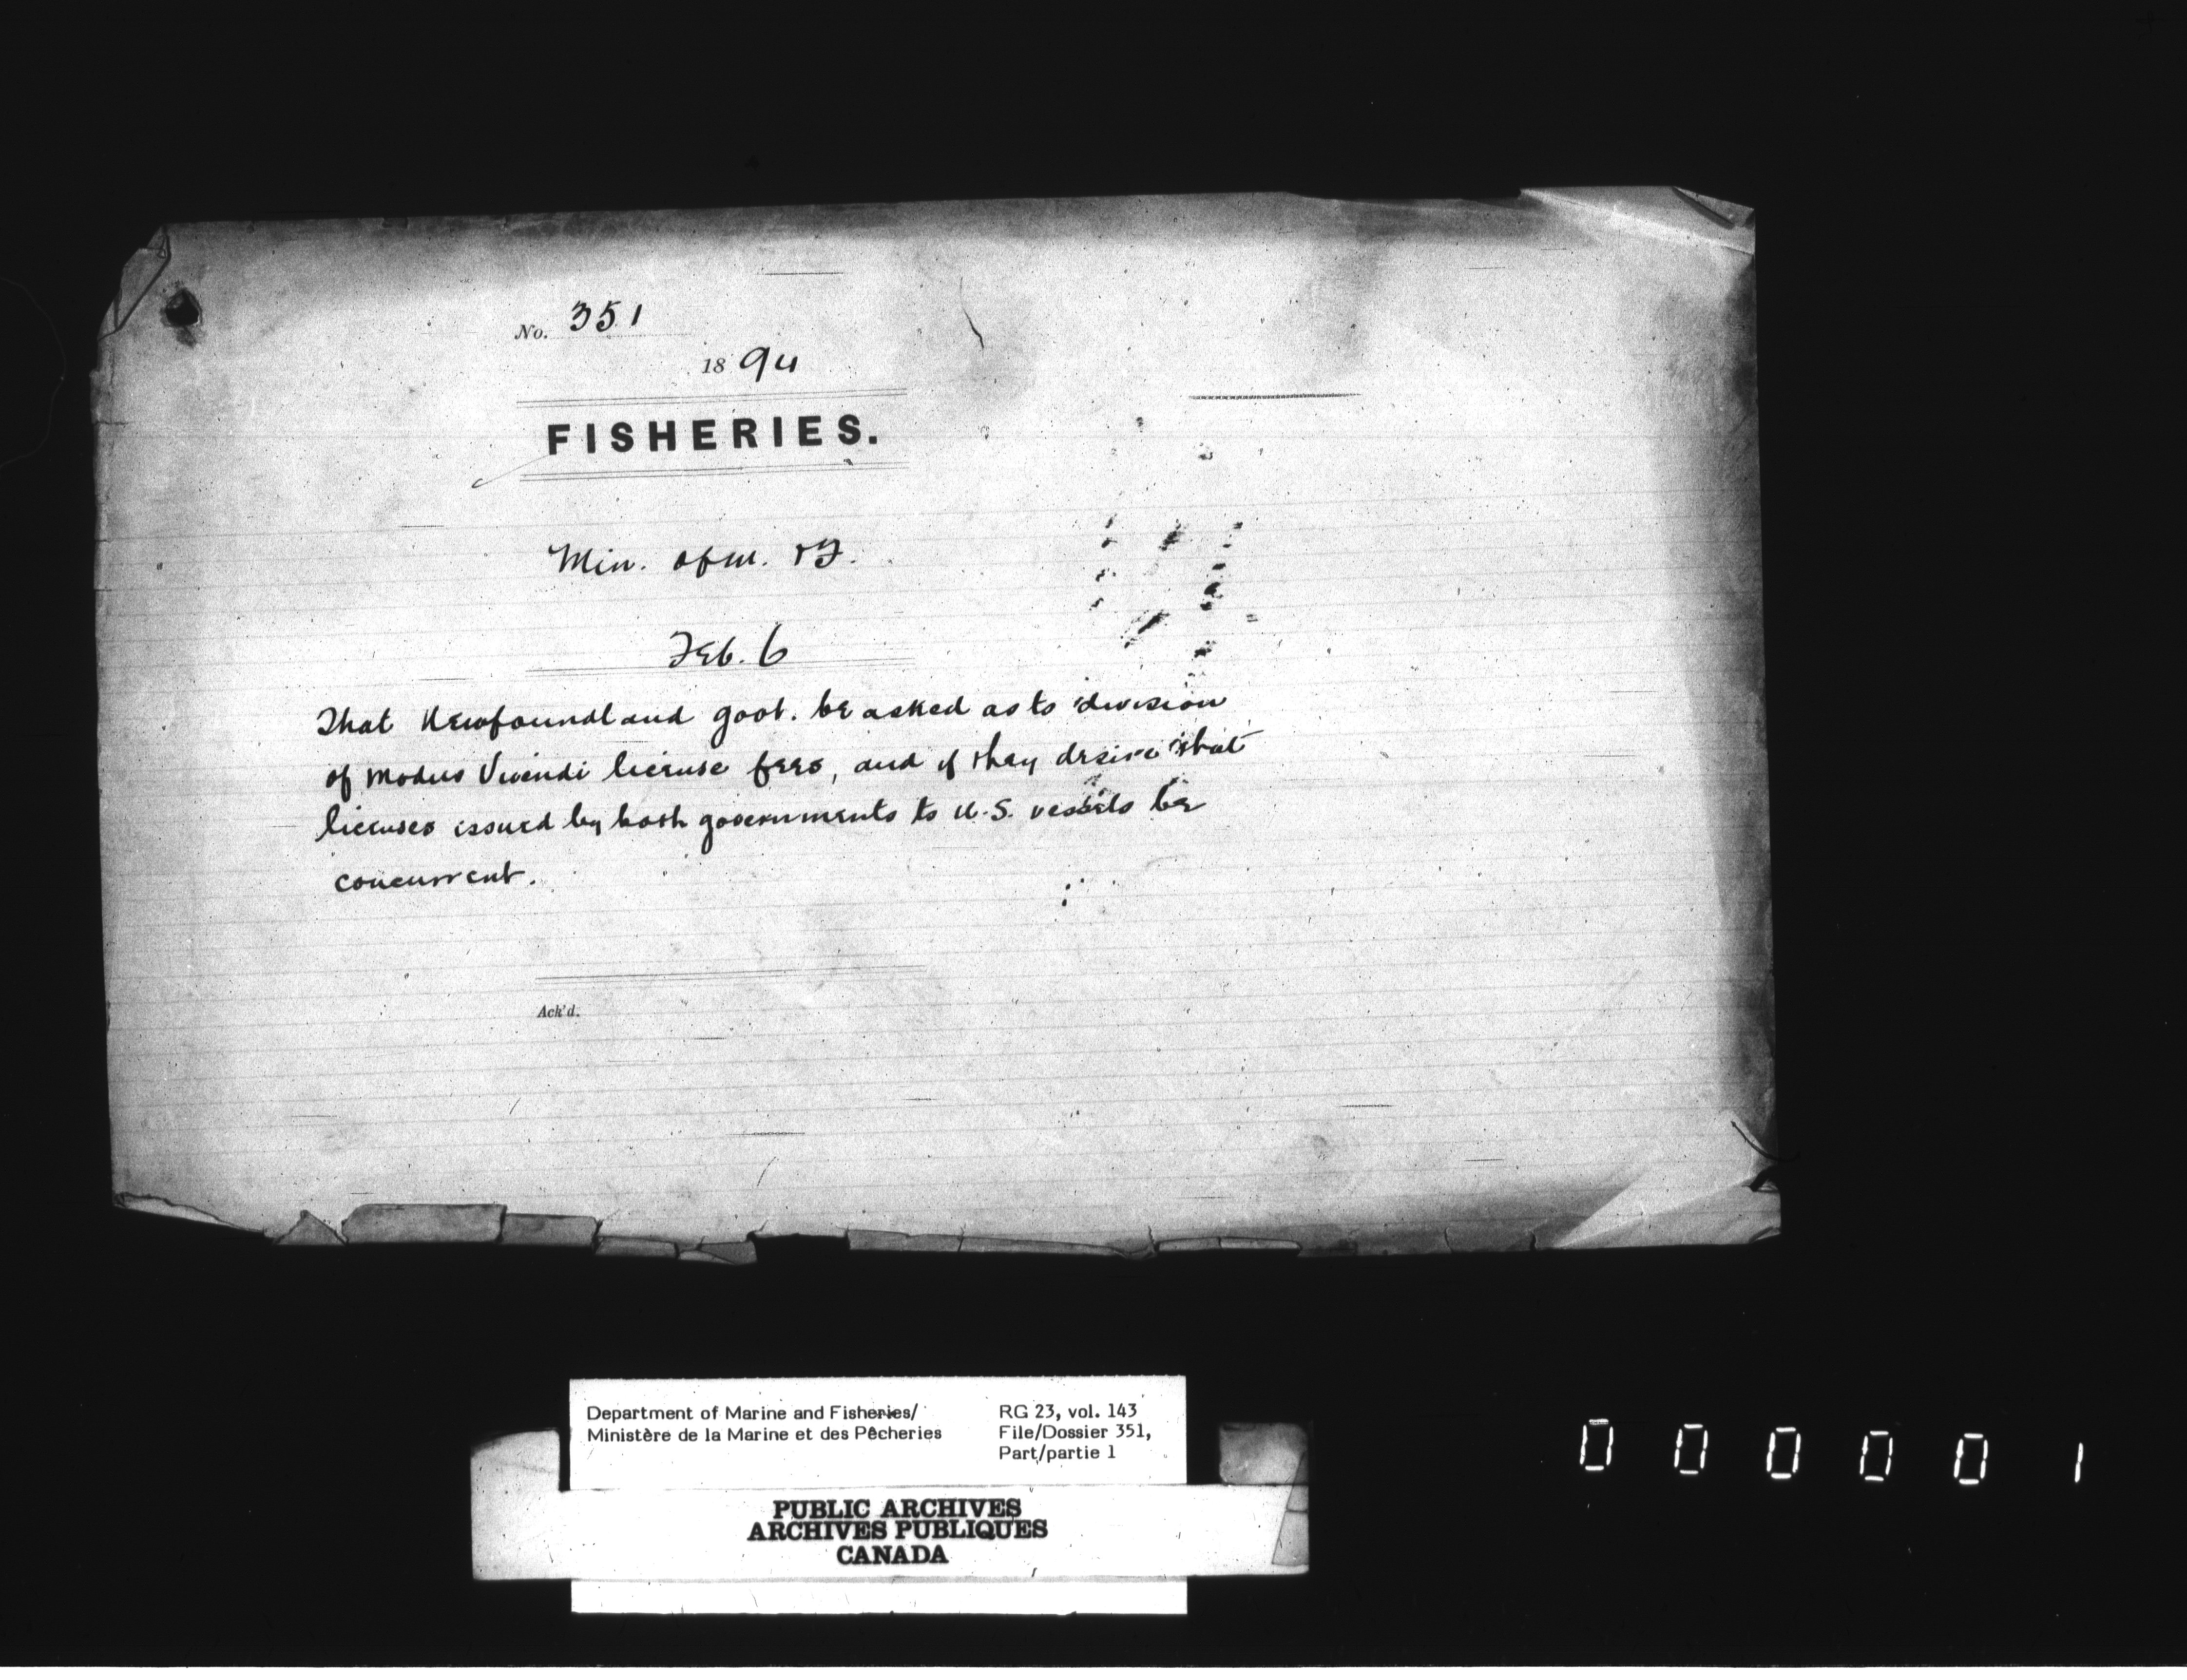 No. 351
1894
FISHERIES.
Min. of M. & F.
Feb. 6
That Newfoundland govt. be asked as to division
of Modus Vivendi license fees, and if they desire that
licenses issued by both governments to U.S. vessels be
concurrent.
Ack'd.
Department of Marine and Fisheries/
Ministère de la Marine et des Pêcheries
RG 23, vol. 143
File/Dossier 351,
Part/partie 1
PUBLIC ARCHIVES
ARCHIVES PUBLIQUES
CANADA
000001